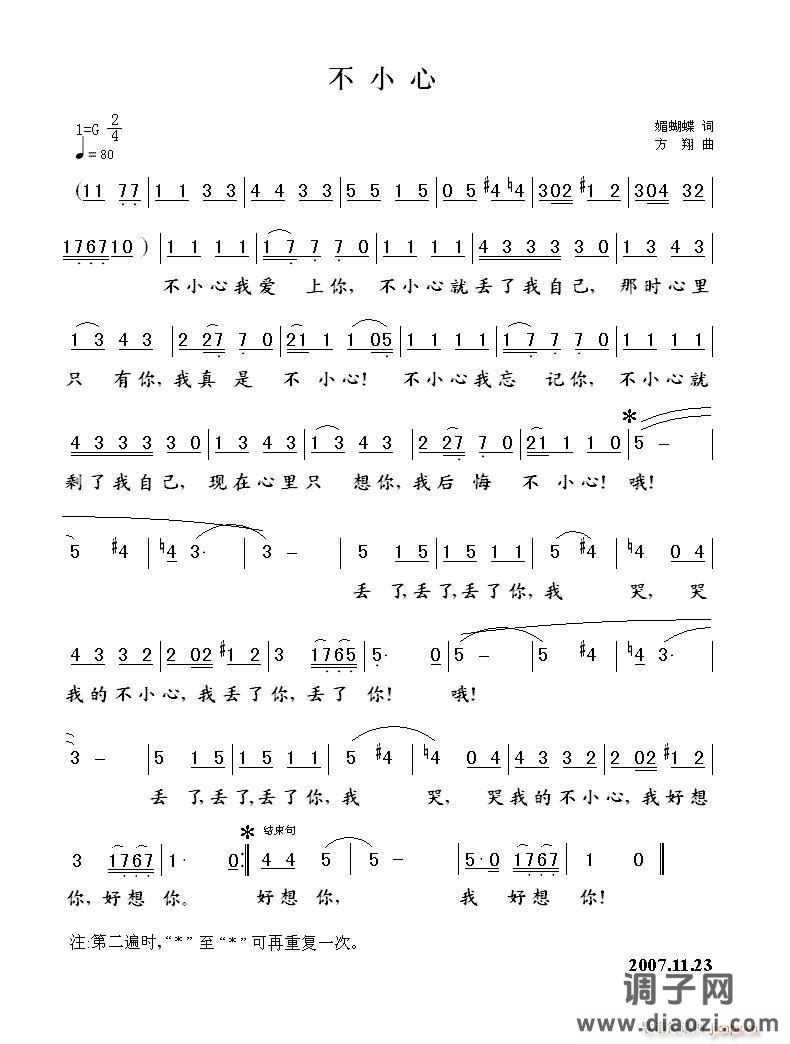 不小心
1=G 2/4
♩=80
媚蝴蝶 词
方 翔 曲
(11 77|1 1 3 3|4 4 3 3|5 5 1 5|0 5 #4 ♮4|302 #1 2|304 32|
176710)|1 1 1 1|1 7 7 7 0|1 1 1 1|4 3 3 3 3 0|1 3 4 3|
不小心我爱 上你, 不小心就丢了我自己, 那时心里
1 3 4 3|2 27 7 0|21 1 1 05|1 1 1 1|1 7 7 7 0|1 1 1 1|
只 有你,我真 是 不 小心! 不小心我忘 记你, 不小心就
4 3 3 3 3 0|1 3 4 3|1 3 4 3|2 27 7 0|21 1 1 0|* 5 –|
剩了我自己, 现在心里只 想你,我后 悔 不 小心! 哦!
5 #4|♮4 3·|3 –|5 1 5|1 5 1 1|5 #4|♮4 0 4|
丢 了,丢了,丢了你,我 哭, 哭
4 3 3 2|2 02 #1 2|3 1765|5· 0|5 –|5 #4|♮4 3·|
我的不小心,我丢了你,丢了 你! 哦!
3 –|5 1 5|1 5 1 1|5 #4|♮4 0 4|4 3 3 2|2 02 #1 2|
丢 了,丢了,丢了你,我 哭, 哭我的不小心,我好想
3 1767|1· 0:‖* 结束句 4 4 5|5 –|5· 0 1767|1 0‖
你,好想 你。 好想 你, 我 好想 你!
注:第二遍时,“*”至“*”可再重复一次。
2007.11.23
调子网
www.diaozi.com